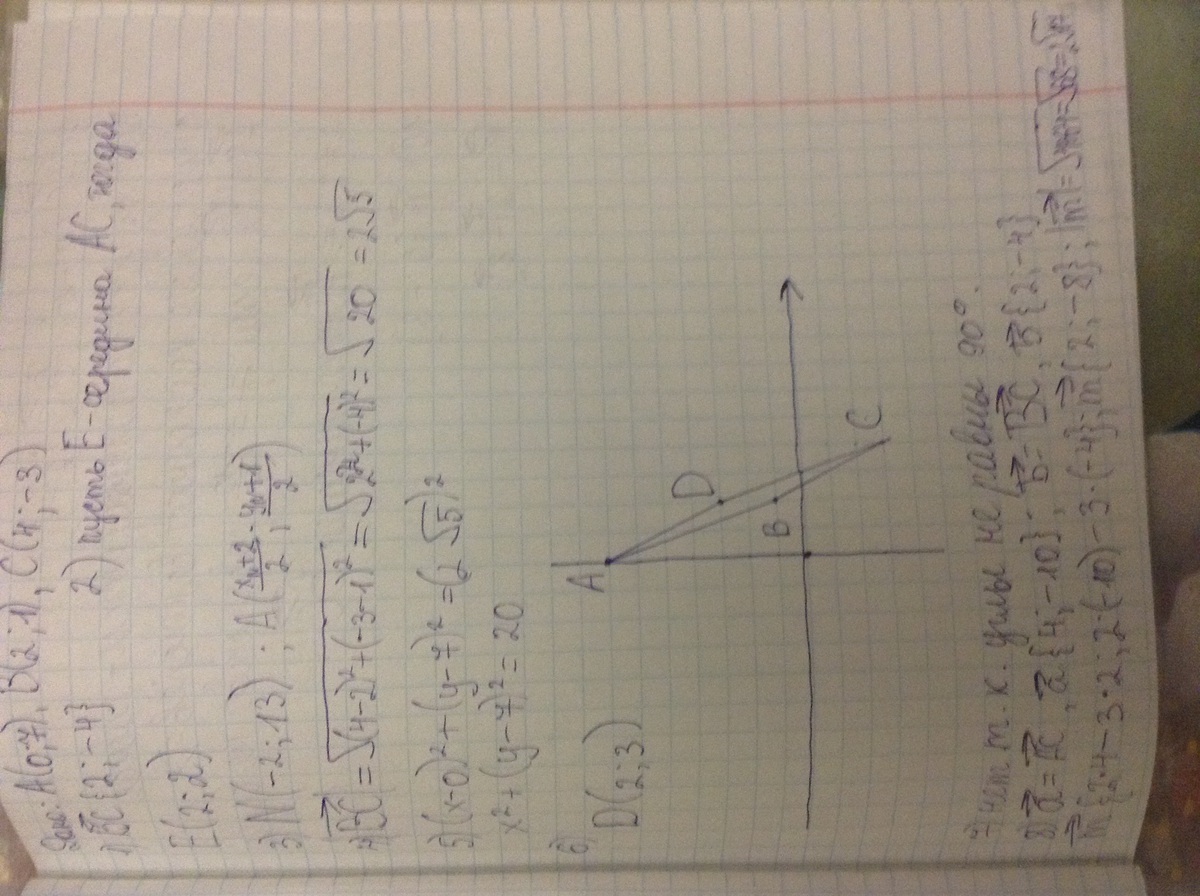 Дано: A(0;7), B(2;1), C(4;-3)
1) BC{2;-4} 2) пусть E-середина AC, тогда
E(2;2)
3) N(-2;13); A(xₙ+2/2; yₙ+1/2)
4) |BC|=√(4-2)²+(-3-1)²=√2²+(-4)²=√20=2√5
5) (x-0)²+(y-7)²=(2√5)²
x²+(y-7)²=20
6)
D(2;3)
A
D
B
C
7) нет т.к. углы не равны 90°.
8) a=AC, a{4;-10}; b=BC, b{2;-4}
m{2·4-3·2; 2·(-10)-3·(-4)}; m{2;-8}; |m|=√4+64=√68=2√17